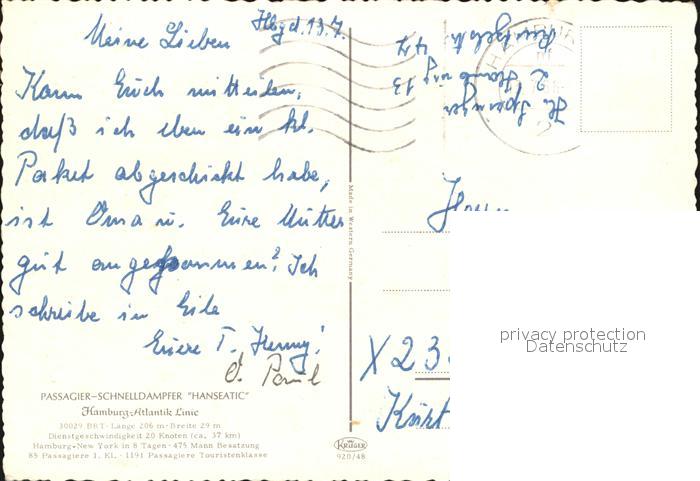 Hbg d. 13.7.
Meine Lieben
Kann Euch mitteilen,
daß ich eben ein kl.
Paket abgeschickt habe,
ist Oma u. Eure Mutter
gut angekommen? Ich
schreibe in Eile
Euere T. Henny!
O. Paul
PASSAGIER-SCHNELLDAMPFER "HANSEATIC"
Hamburg-Atlantik Linie
30029 BRT · Länge 206 m · Breite 29 m
Dienstgeschwindigkeit 20 Knoten (ca. 37 km)
Hamburg-New York in 8 Tagen · 475 Mann Besatzung
85 Passagiere 1. Kl. · 1191 Passagiere Touristenklasse
Made in Western Germany
KRÜGER
920/48
2 Hamburg 13
X 23
privacy protection
Datenschutz